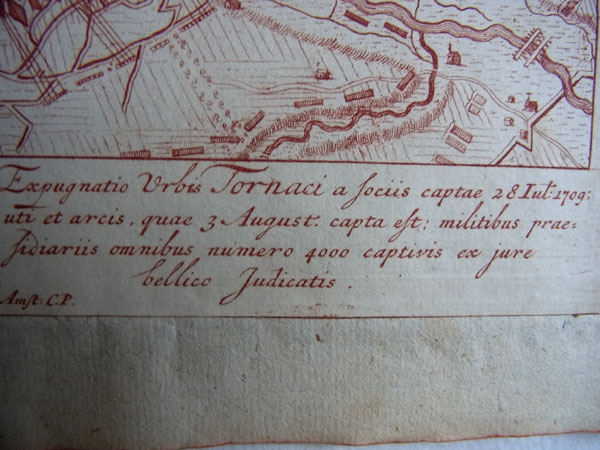 Expugnatio Urbis Tornaci a sociis captae 28 Iul: 1709:
uti et arcis, quae 3 August: capta est; militibus prae=
sidiariis omnibus numero 4000 captivis ex jure
bellico Judicatis.
Amst: C.P.